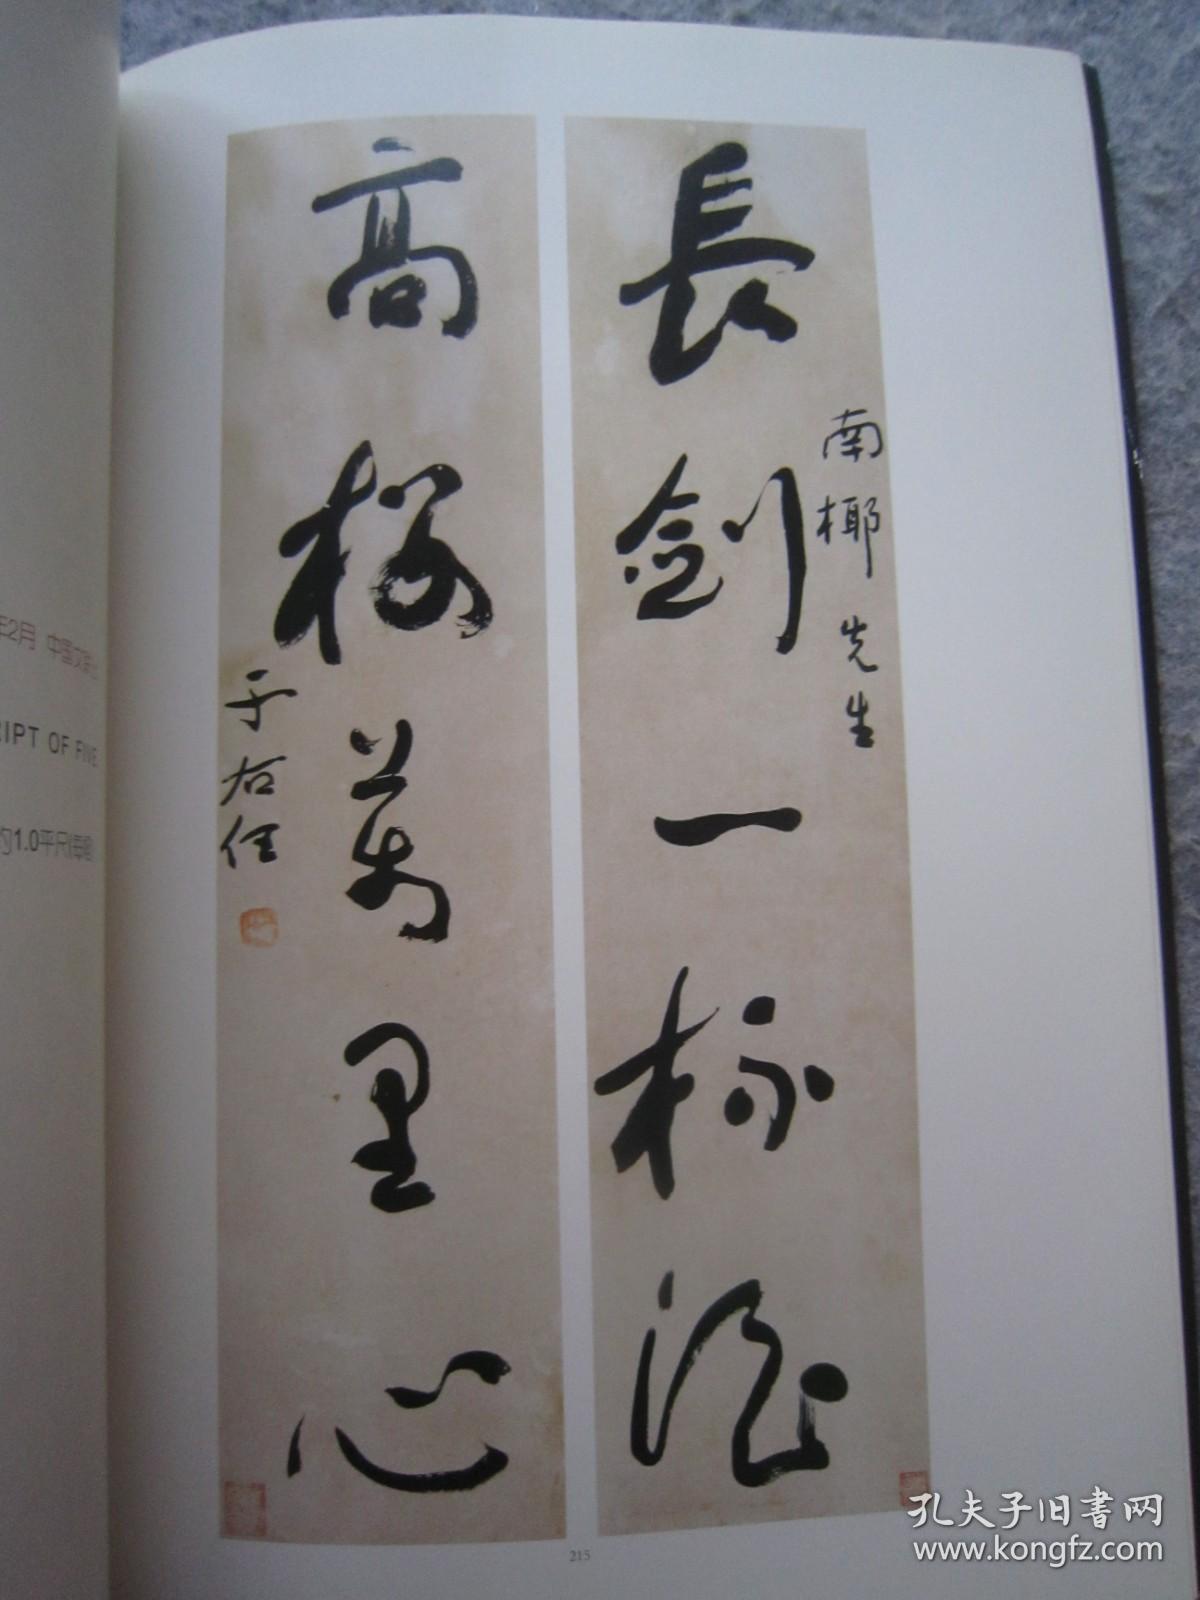 年2月 中国文
RIPT OF FIVE
约1.0平尺(每幅)
長劍一杯酒
南椰先生
高樓萬里心
于右任
215
孔夫子旧书网
www.kongfz.com